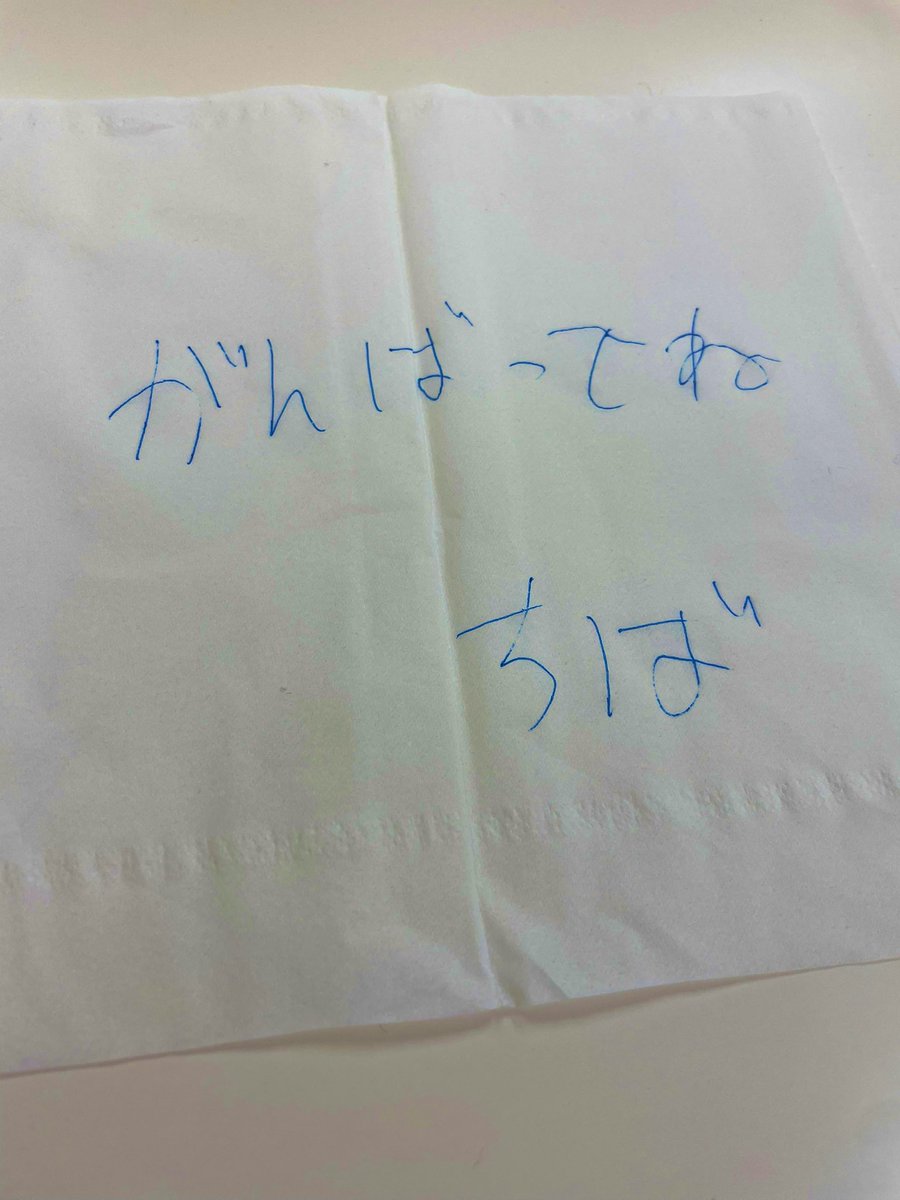 がんばってね
ちば